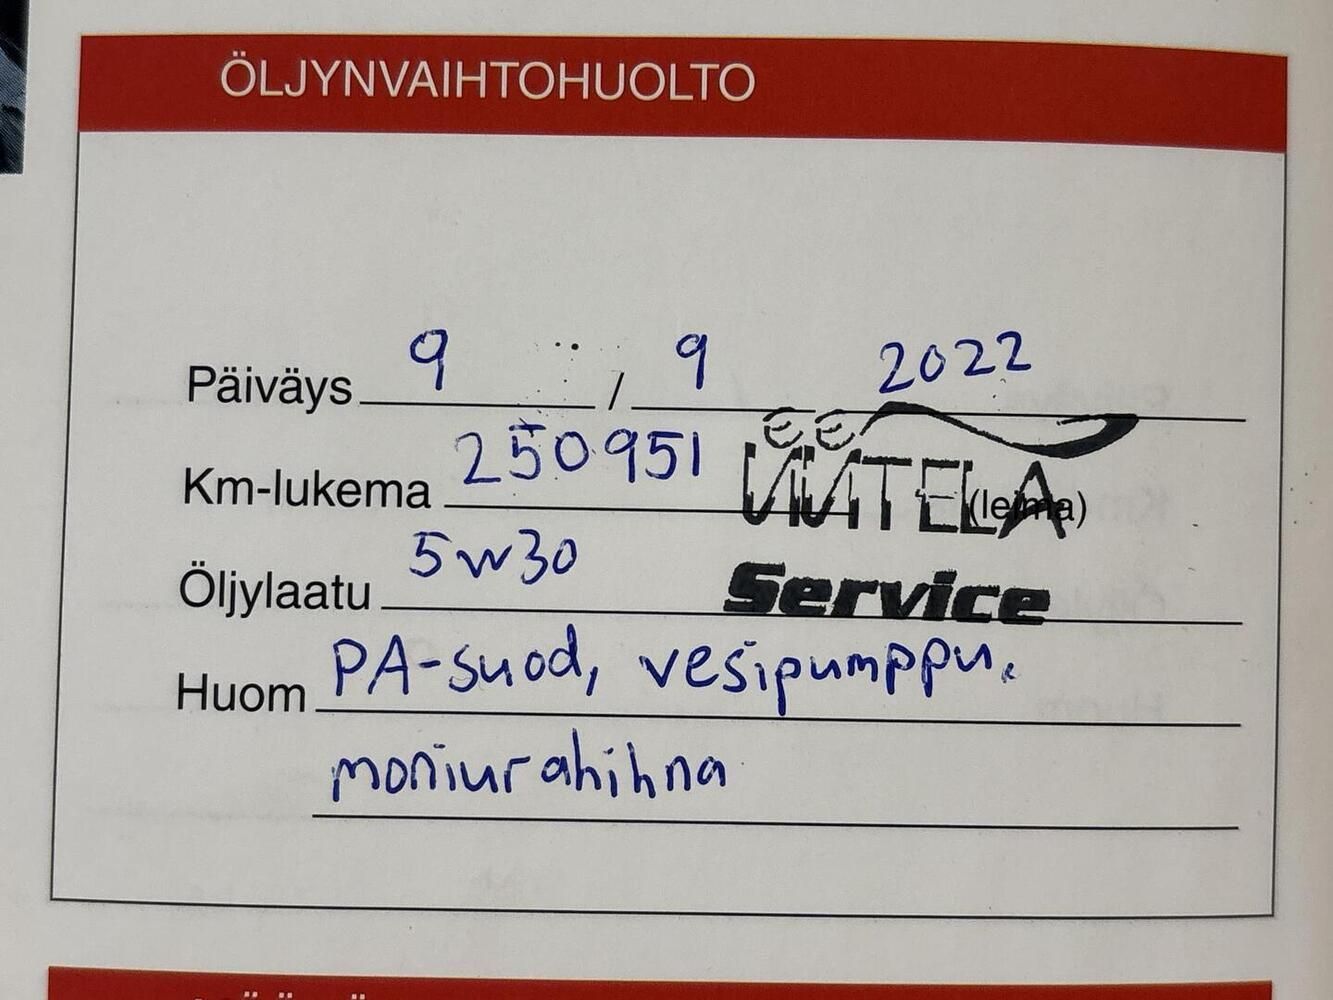 ÖLJYNVAIHTOHUOLTO
Päiväys 9 / 9 2022
Km-lukema 250951 (leima)
Öljylaatu 5W30
Service
Huom PA-suod, vesipumppu.
moniurahihna